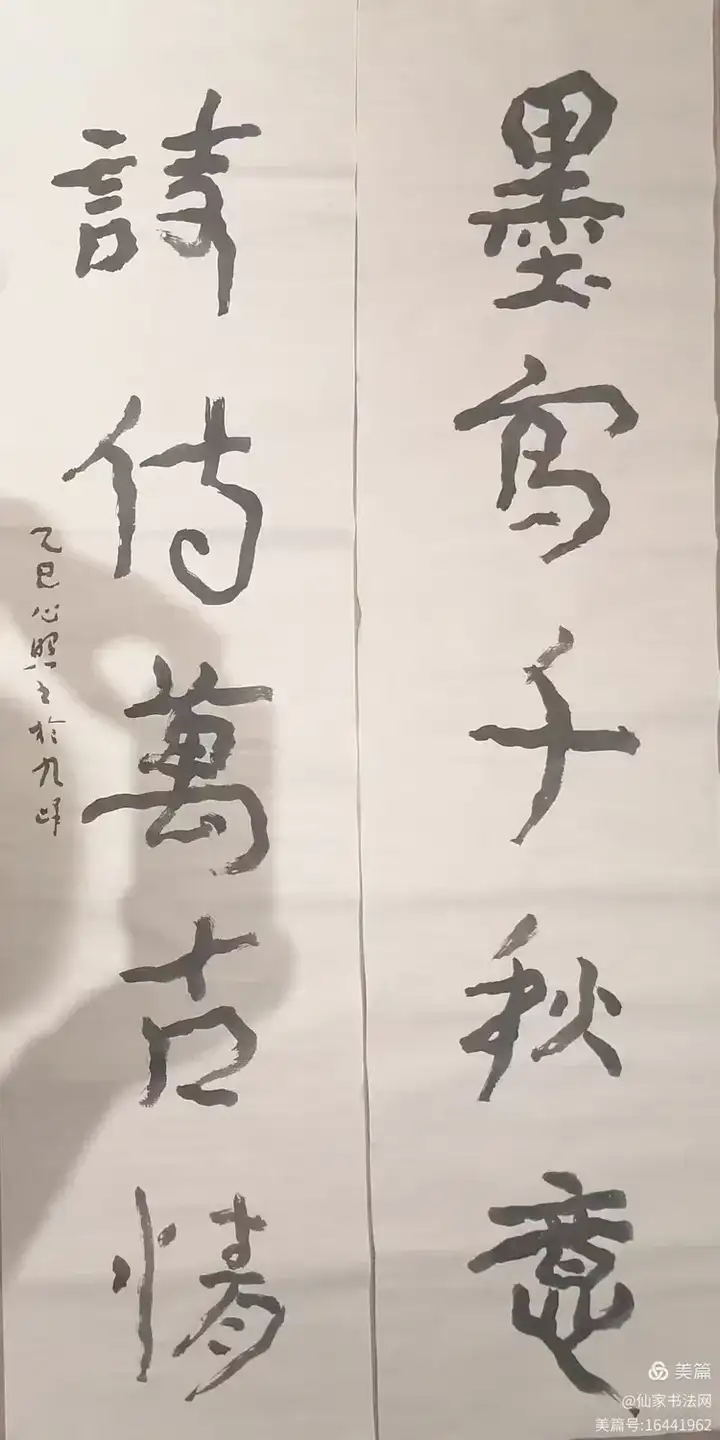 墨寫千秋意
詩傳萬古情
乙巳心照書於九峰
美篇
@仙家书法网
美篇号:16441962